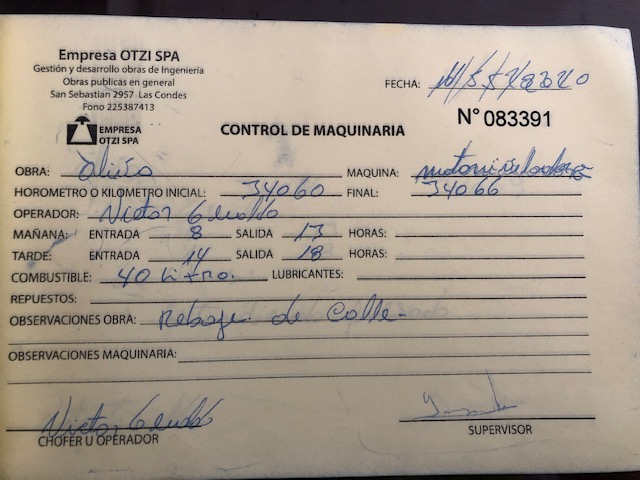 Empresa OTZI SPA
Gestión y desarrollo obras de Ingeniería
Obras publicas en general
San Sebastian 2957 Las Condes
Fono 225387413
EMPRESA
OTZI SPA
FECHA:
CONTROL DE MAQUINARIA
N° 083391
OBRA: MAQUINA:
HOROMETRO O KILOMETRO INICIAL: 34060 FINAL: 34066
OPERADOR: Victor
MAÑANA: ENTRADA 8 SALIDA 13 HORAS:
TARDE: ENTRADA 14 SALIDA 18 HORAS:
COMBUSTIBLE: 40 Litro. LUBRICANTES:
REPUESTOS:
OBSERVACIONES OBRA: de Calle
OBSERVACIONES MAQUINARIA:
Victor
CHOFER U OPERADOR SUPERVISOR